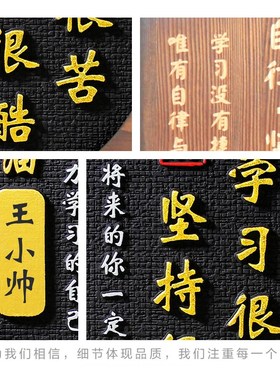 很酷
很苦
自律
学习没有捷
唯有自律与
王小帅
力学习的自己
将来的你一定
坚持很
学习很
为我们相信，细节体现品质，我们注重每一个